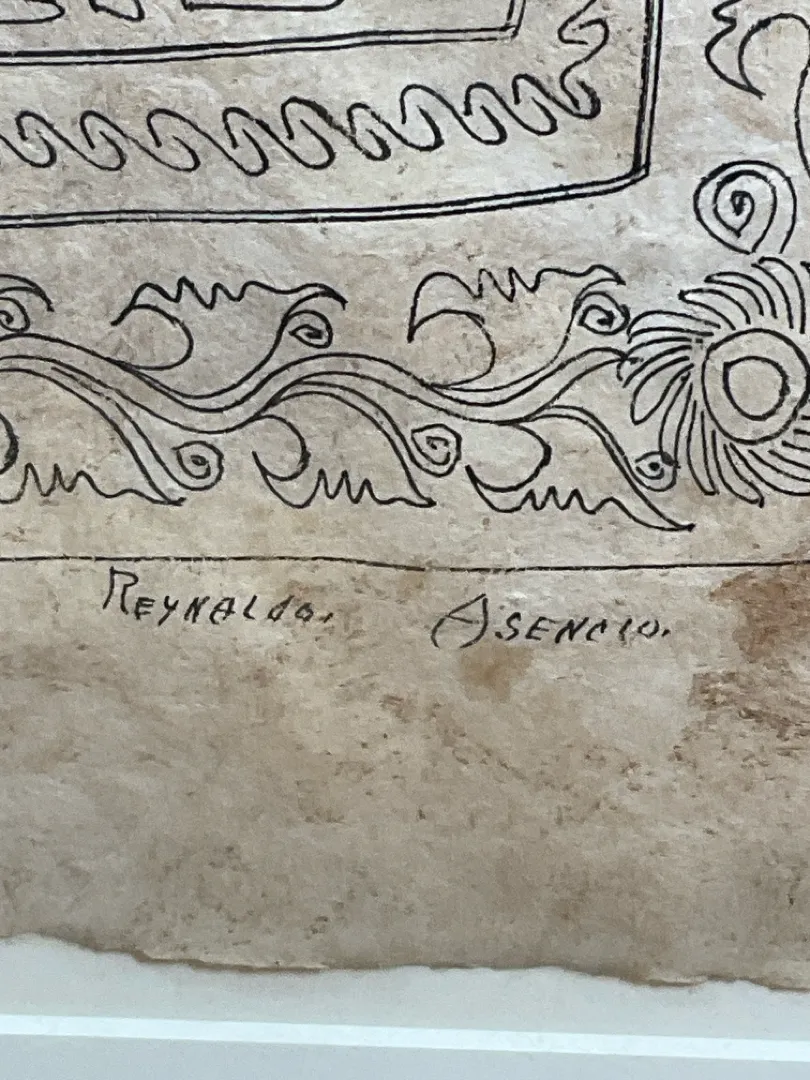 REYNALDO. ASENCIO.